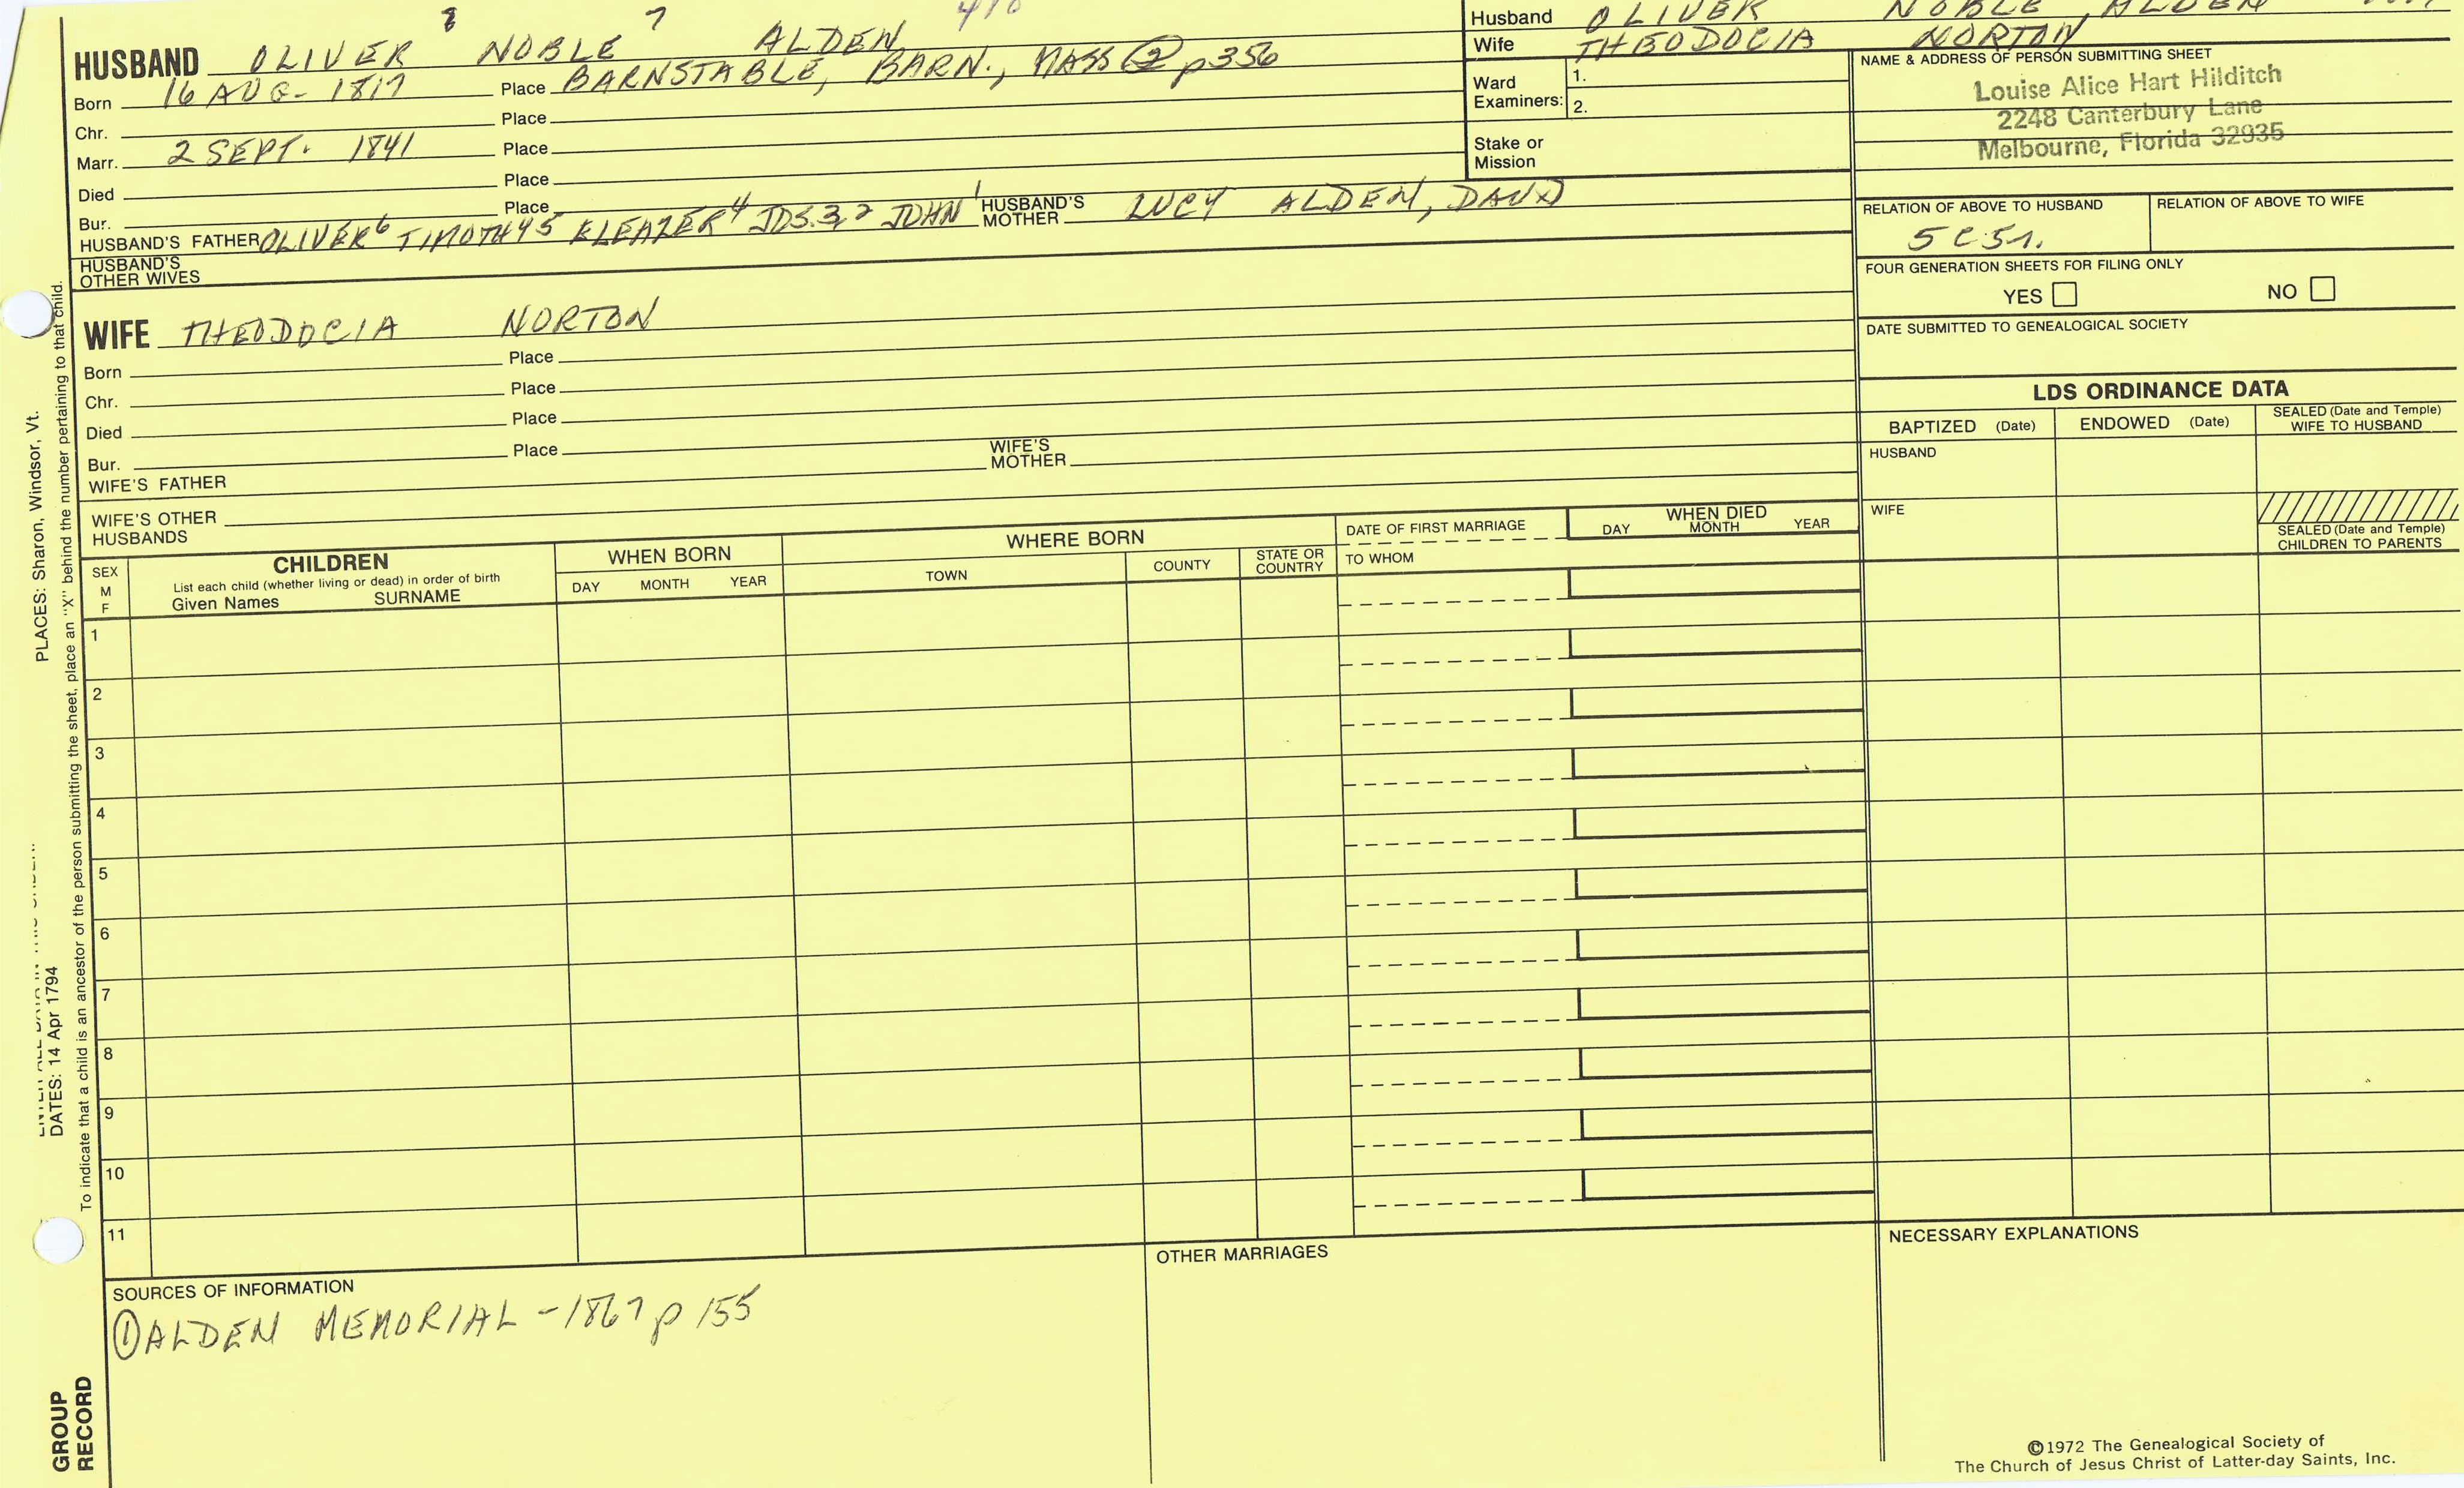 8 7 410
HUSBAND OLIVER NOBLE ALDEN
Born 16 AUG. 1817 Place BARNSTABLE, BARN., MASS ② p 356
Chr. Place
Marr. 2 SEPT. 1841 Place
Died Place
Bur. Place
HUSBAND'S FATHER OLIVER 6 TIMOTHY 5 ELEAZER 4 JOS. 3, 2 JOHN 1 HUSBAND'S MOTHER LUCY ALDEN,
HUSBAND'S OTHER WIVES
WIFE THEODOCIA NORTON
Born Place
Chr. Place
Died Place
Bur. Place
WIFE'S FATHER WIFE'S MOTHER
WIFE'S OTHER HUSBANDS
Husband OLIVER NOBLE ALDEN
Wife THEODOCIA NORTON
Ward Examiners: 1.
2.
Stake or Mission
NAME & ADDRESS OF PERSON SUBMITTING SHEET
Louise Alice Hart Hilditch
2248 Canterbury Lane
Melbourne, Florida 32935
RELATION OF ABOVE TO HUSBAND RELATION OF ABOVE TO WIFE
FOUR GENERATION SHEETS FOR FILING ONLY
YES NO
DATE SUBMITTED TO GENEALOGICAL SOCIETY
LDS ORDINANCE DATA
BAPTIZED (Date) ENDOWED (Date) SEALED (Date and Temple) WIFE TO HUSBAND
HUSBAND
WIFE
SEALED (Date and Temple)
CHILDREN TO PARENTS
SEX
M
F
CHILDREN
List each child (whether living or dead) in order of birth
Given Names SURNAME
WHEN BORN
DAY MONTH YEAR
WHERE BORN
TOWN COUNTY STATE OR COUNTRY
DATE OF FIRST MARRIAGE
TO WHOM
WHEN DIED
DAY MONTH YEAR
1
2
3
4
5
6
7
8
9
10
11
SOURCES OF INFORMATION
① ALDEN MEMORIAL - 1867 p 155
OTHER MARRIAGES
NECESSARY EXPLANATIONS
©1972 The Genealogical Society of
The Church of Jesus Christ of Latter-day Saints, Inc.
PLACES: Sharon, Windsor, Vt.
DATES: 14 Apr 1794
To indicate that a child is an ancestor of the person submitting the sheet, place an "X" behind the number pertaining to that child.
GROUP
RECORD